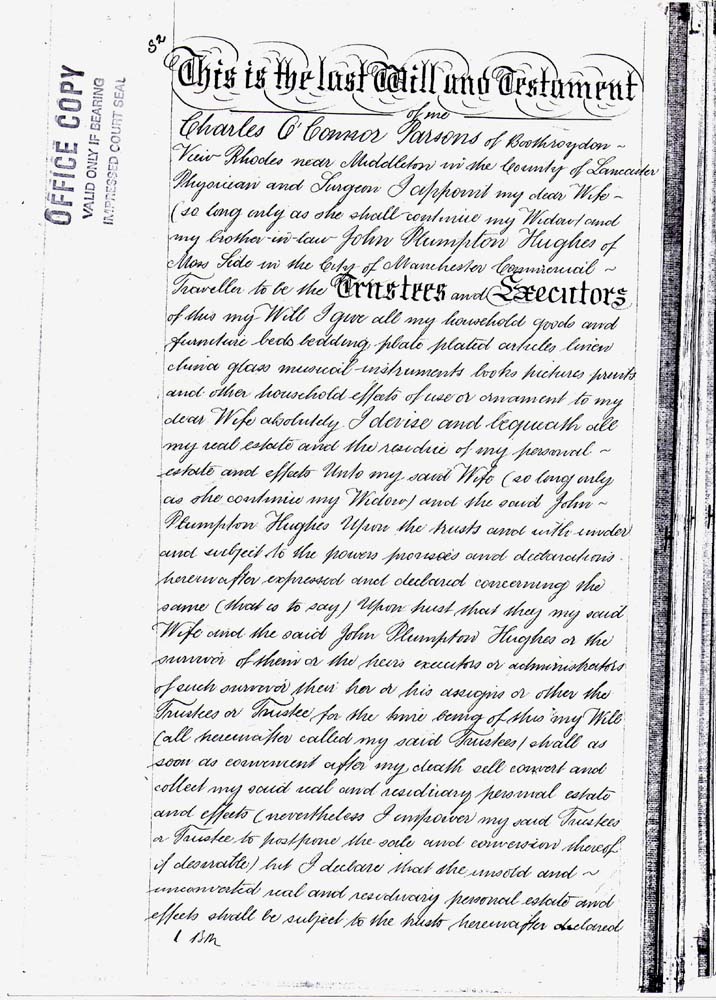 52
OFFICE COPY
VALID ONLY IF BEARING
IMPRESSED COURT SEAL
This is the last Will and Testament
of me
Charles O'Connor Parsons of Boothroydon ~
View Rhodes near Middleton in the County of Lancaster
Physician and Surgeon I appoint my dear Wife ~
(so long only as she shall continue my Widow) and
my brother-in-law John Plumpton Hughes of
Moss Side in the City of Manchester Commercial ~
Traveller to be the Trustees and Executors
of this my Will I give all my household goods and
furniture beds bedding plate plated articles linen
china glass musical instruments books pictures prints
and other household effects of use or ornament to my
dear Wife absolutely I devise and bequeath all
my real estate and the residue of my personal ~
estate and effects Unto my said Wife (so long only
as she continue my Widow) and the said John ~
Plumpton Hughes Upon the trusts and with under
and subject to the powers provisoes and declarations
hereinafter expressed and declared concerning the
same (that is to say) Upon trust that they my said
Wife and the said John Plumpton Hughes or the
survivor of them or the heirs executors or administrators
of such survivor their her or his assigns or other the
Trustees or Trustee for the time being of this my Will
(all hereinafter called my said Trustees) shall as
soon as convenient after my death sell convert and
collect my said real and residuary personal estate
and effects (nevertheless I empower my said Trustees
or Trustee to postpone the sale and conversion thereof
if desirable) but I declare that the unsold and ~
unconverted real and residuary personal estate and
effects shall be subject to the trusts hereinafter declared